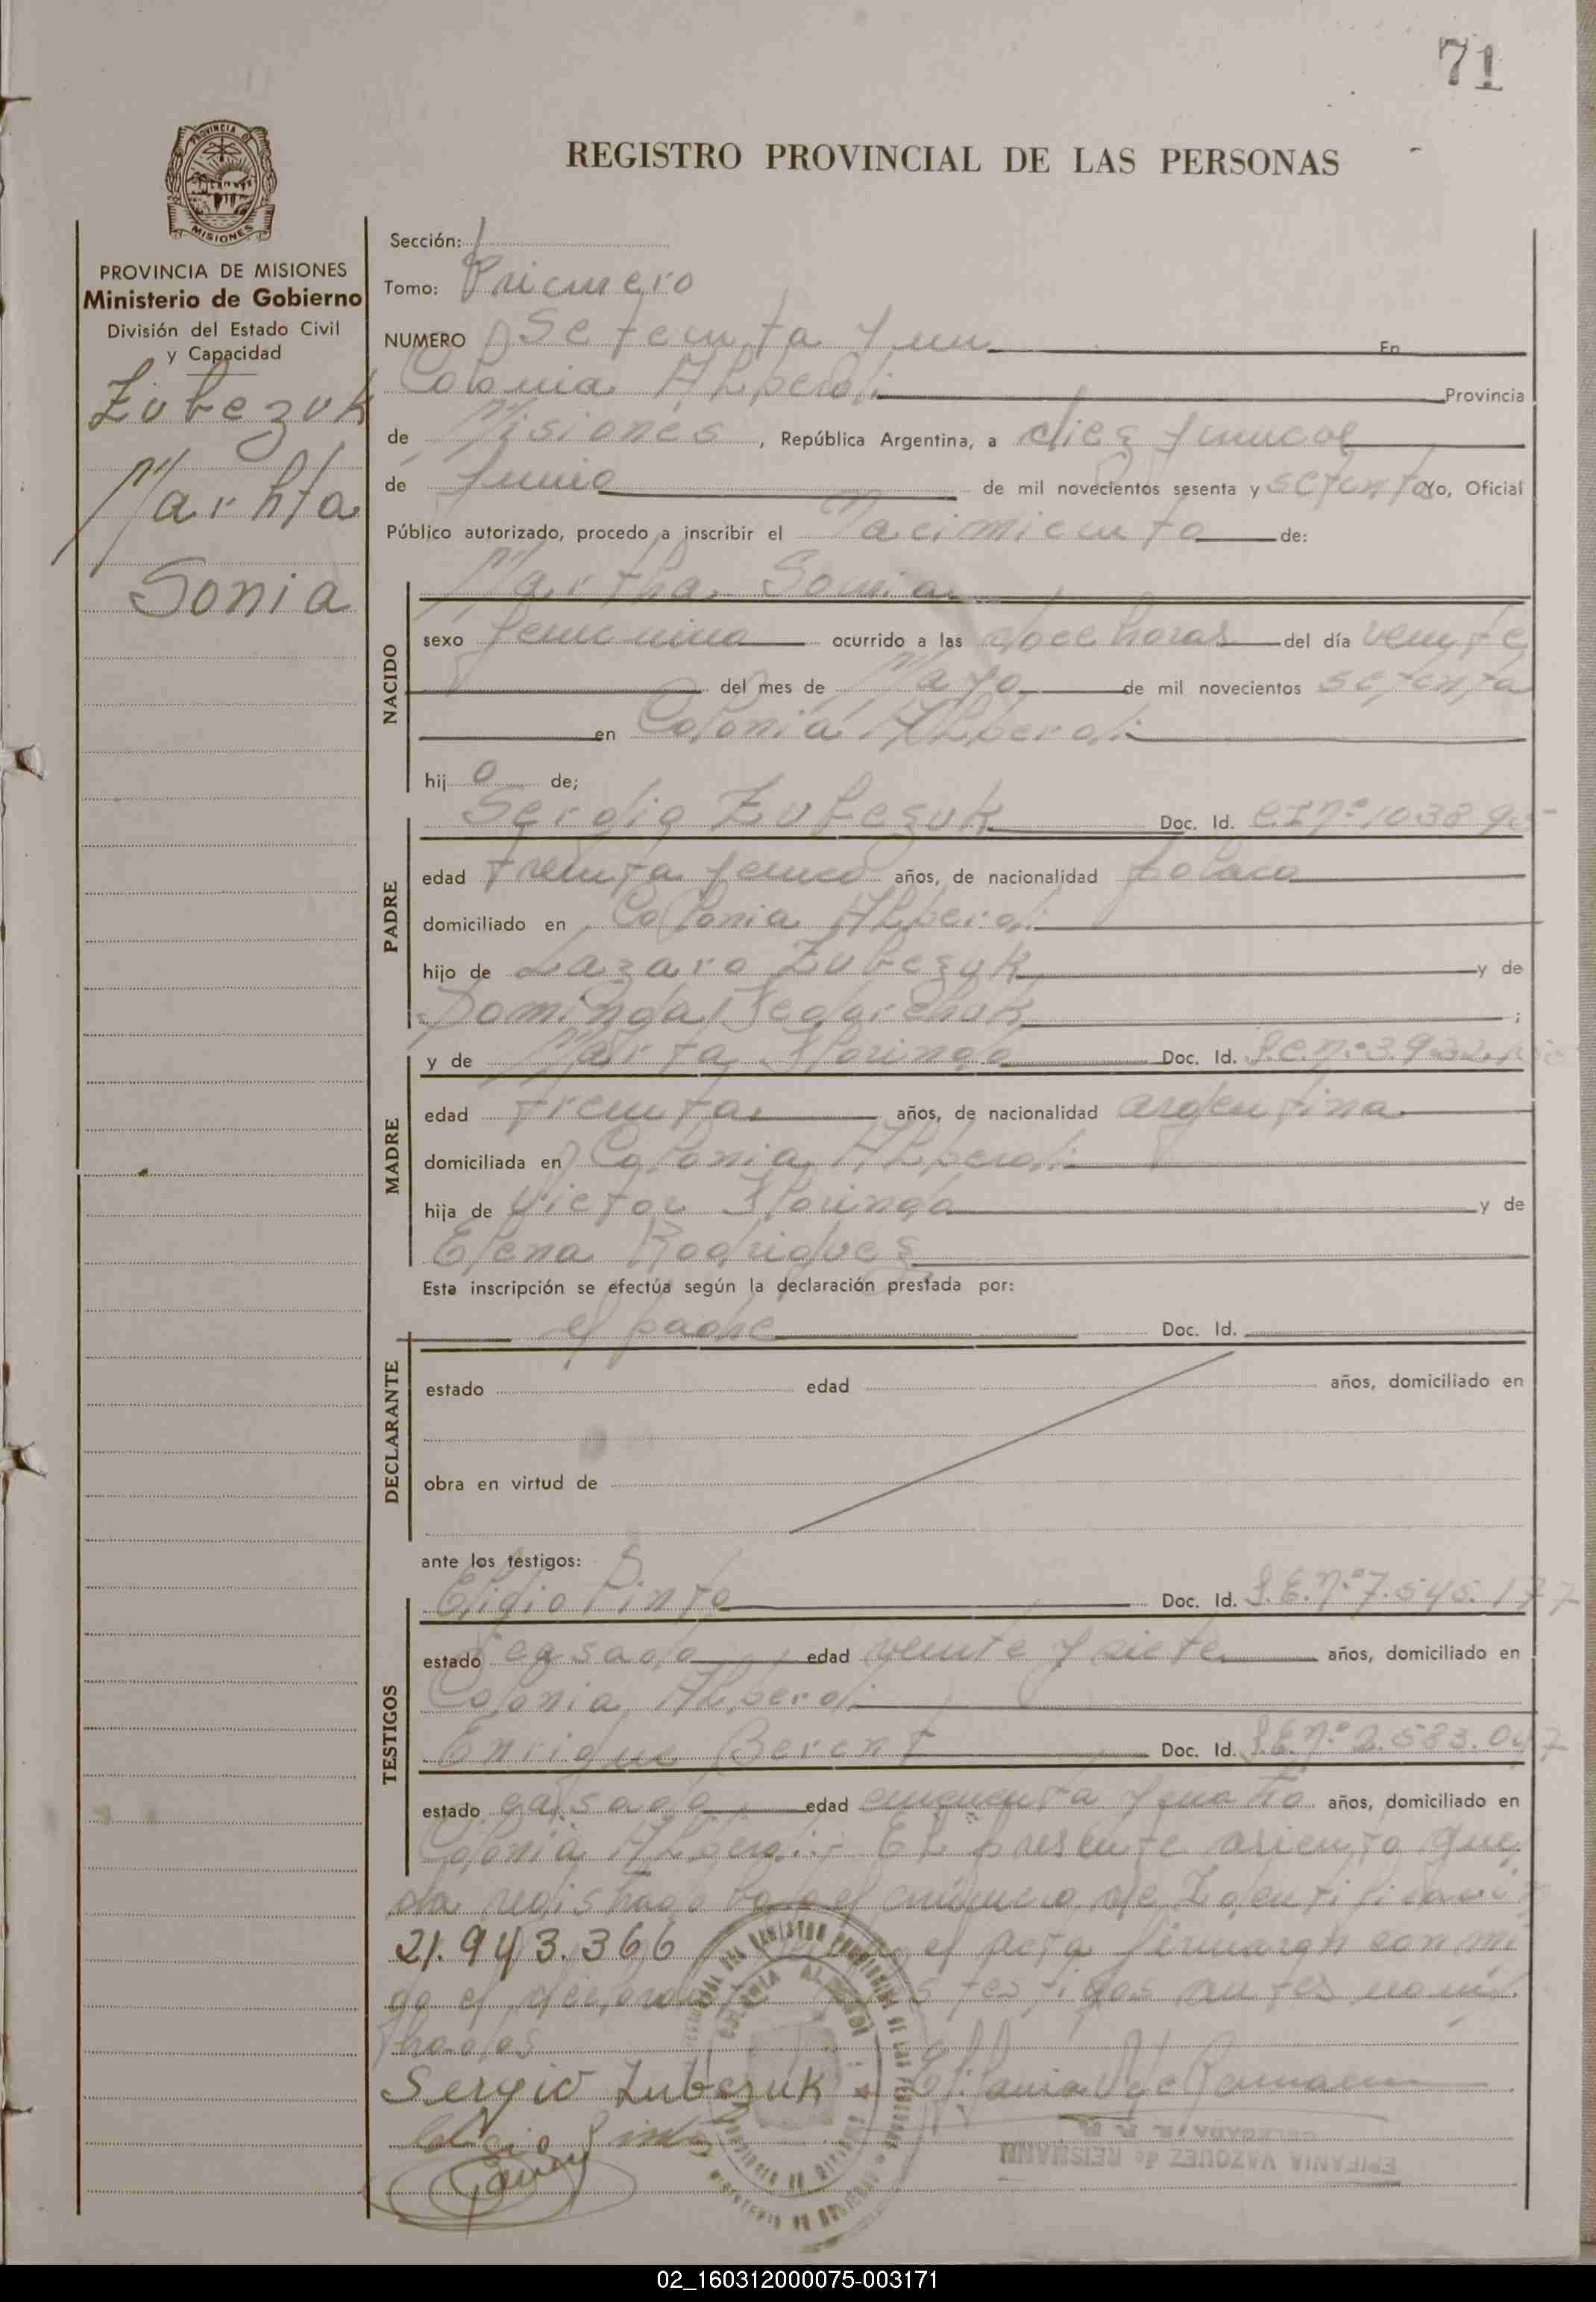 71
PROVINCIA DE
MISIONES
REGISTRO PROVINCIAL DE LAS PERSONAS
PROVINCIA DE MISIONES
Ministerio de Gobierno
División del Estado Civil
y Capacidad
Zubezuk
Marhta
Sonia
Sección:
Tomo: Primero
NUMERO Setenta y un En
Colonia Alberdi Provincia
de Misiones, República Argentina, a diez y nueve
de Junio de mil novecientos sesenta y setenta Yo, Oficial
Público autorizado, procedo a inscribir el Nacimiento de:
NACIDO
Martha Sonia
sexo femenino ocurrido a las doce horas del día veinte
del mes de Mayo de mil novecientos setenta
en Colonia Alberdi
hij o de;
PADRE
Sergio Zubezuk Doc. Id. C.I nº 10389
edad treinta y cinco años, de nacionalidad polaca
domiciliado en Colonia Alberdi
hijo de Lazaro Zubczuk y de
Dominga Fedorchuk ;
MADRE
y de Marta Doc. Id. L.C. nº 3.932.
edad treinta años, de nacionalidad argentina
domiciliada en Colonia Alberdi
hija de Victor y de
Elena Rodrigues
Esta inscripción se efectúa según la declaración prestada por:
DECLARANTE
el padre Doc. Id.
estado edad años, domiciliado en
obra en virtud de
ante los testigos:
TESTIGOS
Eligio Pinto Doc. Id. L.E. nº 7.545.177
estado casado edad veinte y siete años, domiciliado en
Colonia Alberdi
Enrique Berent Doc. Id. L.E. nº 2.583.047
estado casado edad cincuenta y cuatro años, domiciliado en
Colonia Alberdi.- El presente asiento que
da registrado bajo el número de Identificaci
21.943.366 el acta firmaran conmi
go el declarante testigos antes nom
brados
Sergio Zubczuk
Eligio Pinto
EPIFANIA VAZQUEZ de REISMANN
DELEGADA R. P. P.
02_160312000075-003171